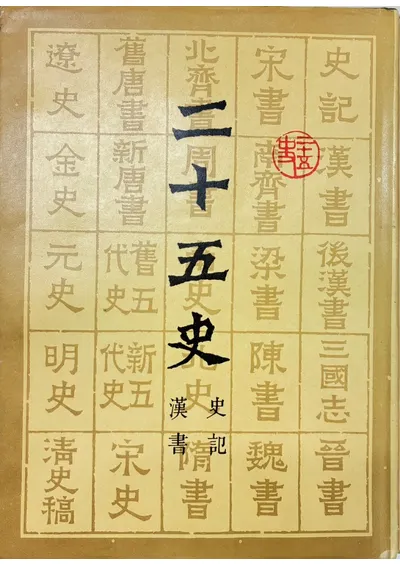 二十五史
史記
漢書
史記
漢書
後漢書
三國志
晉書
宋書
南齊書
梁書
陳書
魏書
北齊書
周書
史
北史
隋書
舊唐書
新唐書
舊五代史
新五代史
宋史
遼史
金史
元史
明史
清史稿